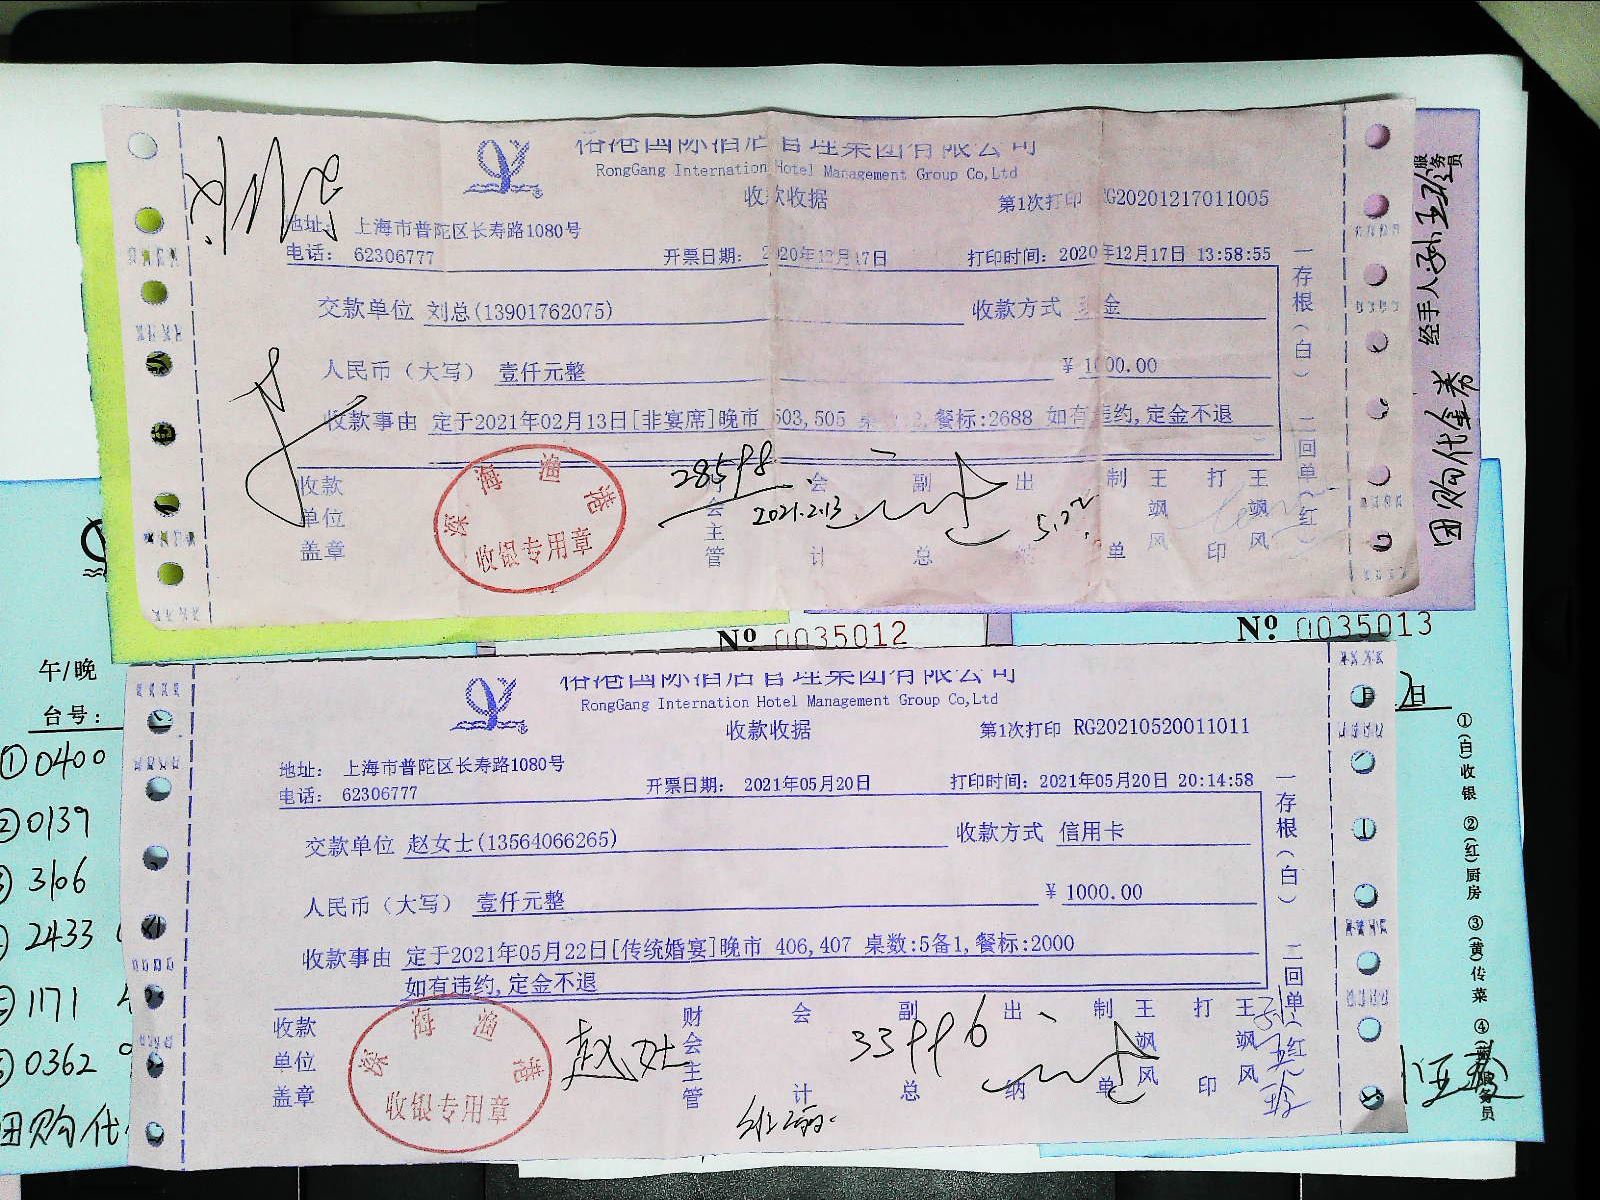 裕港国际酒店管理集团有限公司
RongGang International Hotel Management Group Co,Ltd
收款收据
第1次打印 RG20201217011005
地址： 上海市普陀区长寿路1080号
电话： 62306777
开票日期： 2020年12月17日
打印时间: 2020年12月17日 13:58:55
交款单位 刘总(13901762075)
收款方式 现金
人民币（大写） 壹仟元整
¥ 1000.00
收款事由 定于2021年02月13日[非宴席]晚市 503,505 桌数:2,餐标:2688 如有违约,定金不退
收款单位盖章
深海渔港
收银专用章
28598
2021.2.13
5.22
会主管
会计
副总
出纳
制单
王飒风
打印
王飒风
一存根（白） 二回单（红）
经手人 孙玉玲 服务员
团购代金券
№ 0035012
№ 0035013
裕港国际酒店管理集团有限公司
RongGang International Hotel Management Group Co,Ltd
收款收据
第1次打印 RG20210520011011
地址： 上海市普陀区长寿路1080号
电话： 62306777
开票日期： 2021年05月20日
打印时间: 2021年05月20日 20:14:58
交款单位 赵女士(13564066265)
收款方式 信用卡
人民币（大写） 壹仟元整
¥ 1000.00
收款事由 定于2021年05月22日[传统婚宴]晚市 406,407 桌数:5备1,餐标:2000
如有违约,定金不退
收款单位盖章
深海渔港
收银专用章
赵女士
财会主管
会计
副总
33996
出纳
制单
王飒风
打印
王飒风
孙玉玲
一存根（白） 二回单（红）
午/晚
台号：
①0400
②0139
③3106
2433
1171
0362
团购代
日
①(白)收银 ②(红)厨房 ③(黄)传菜 ④
服务员